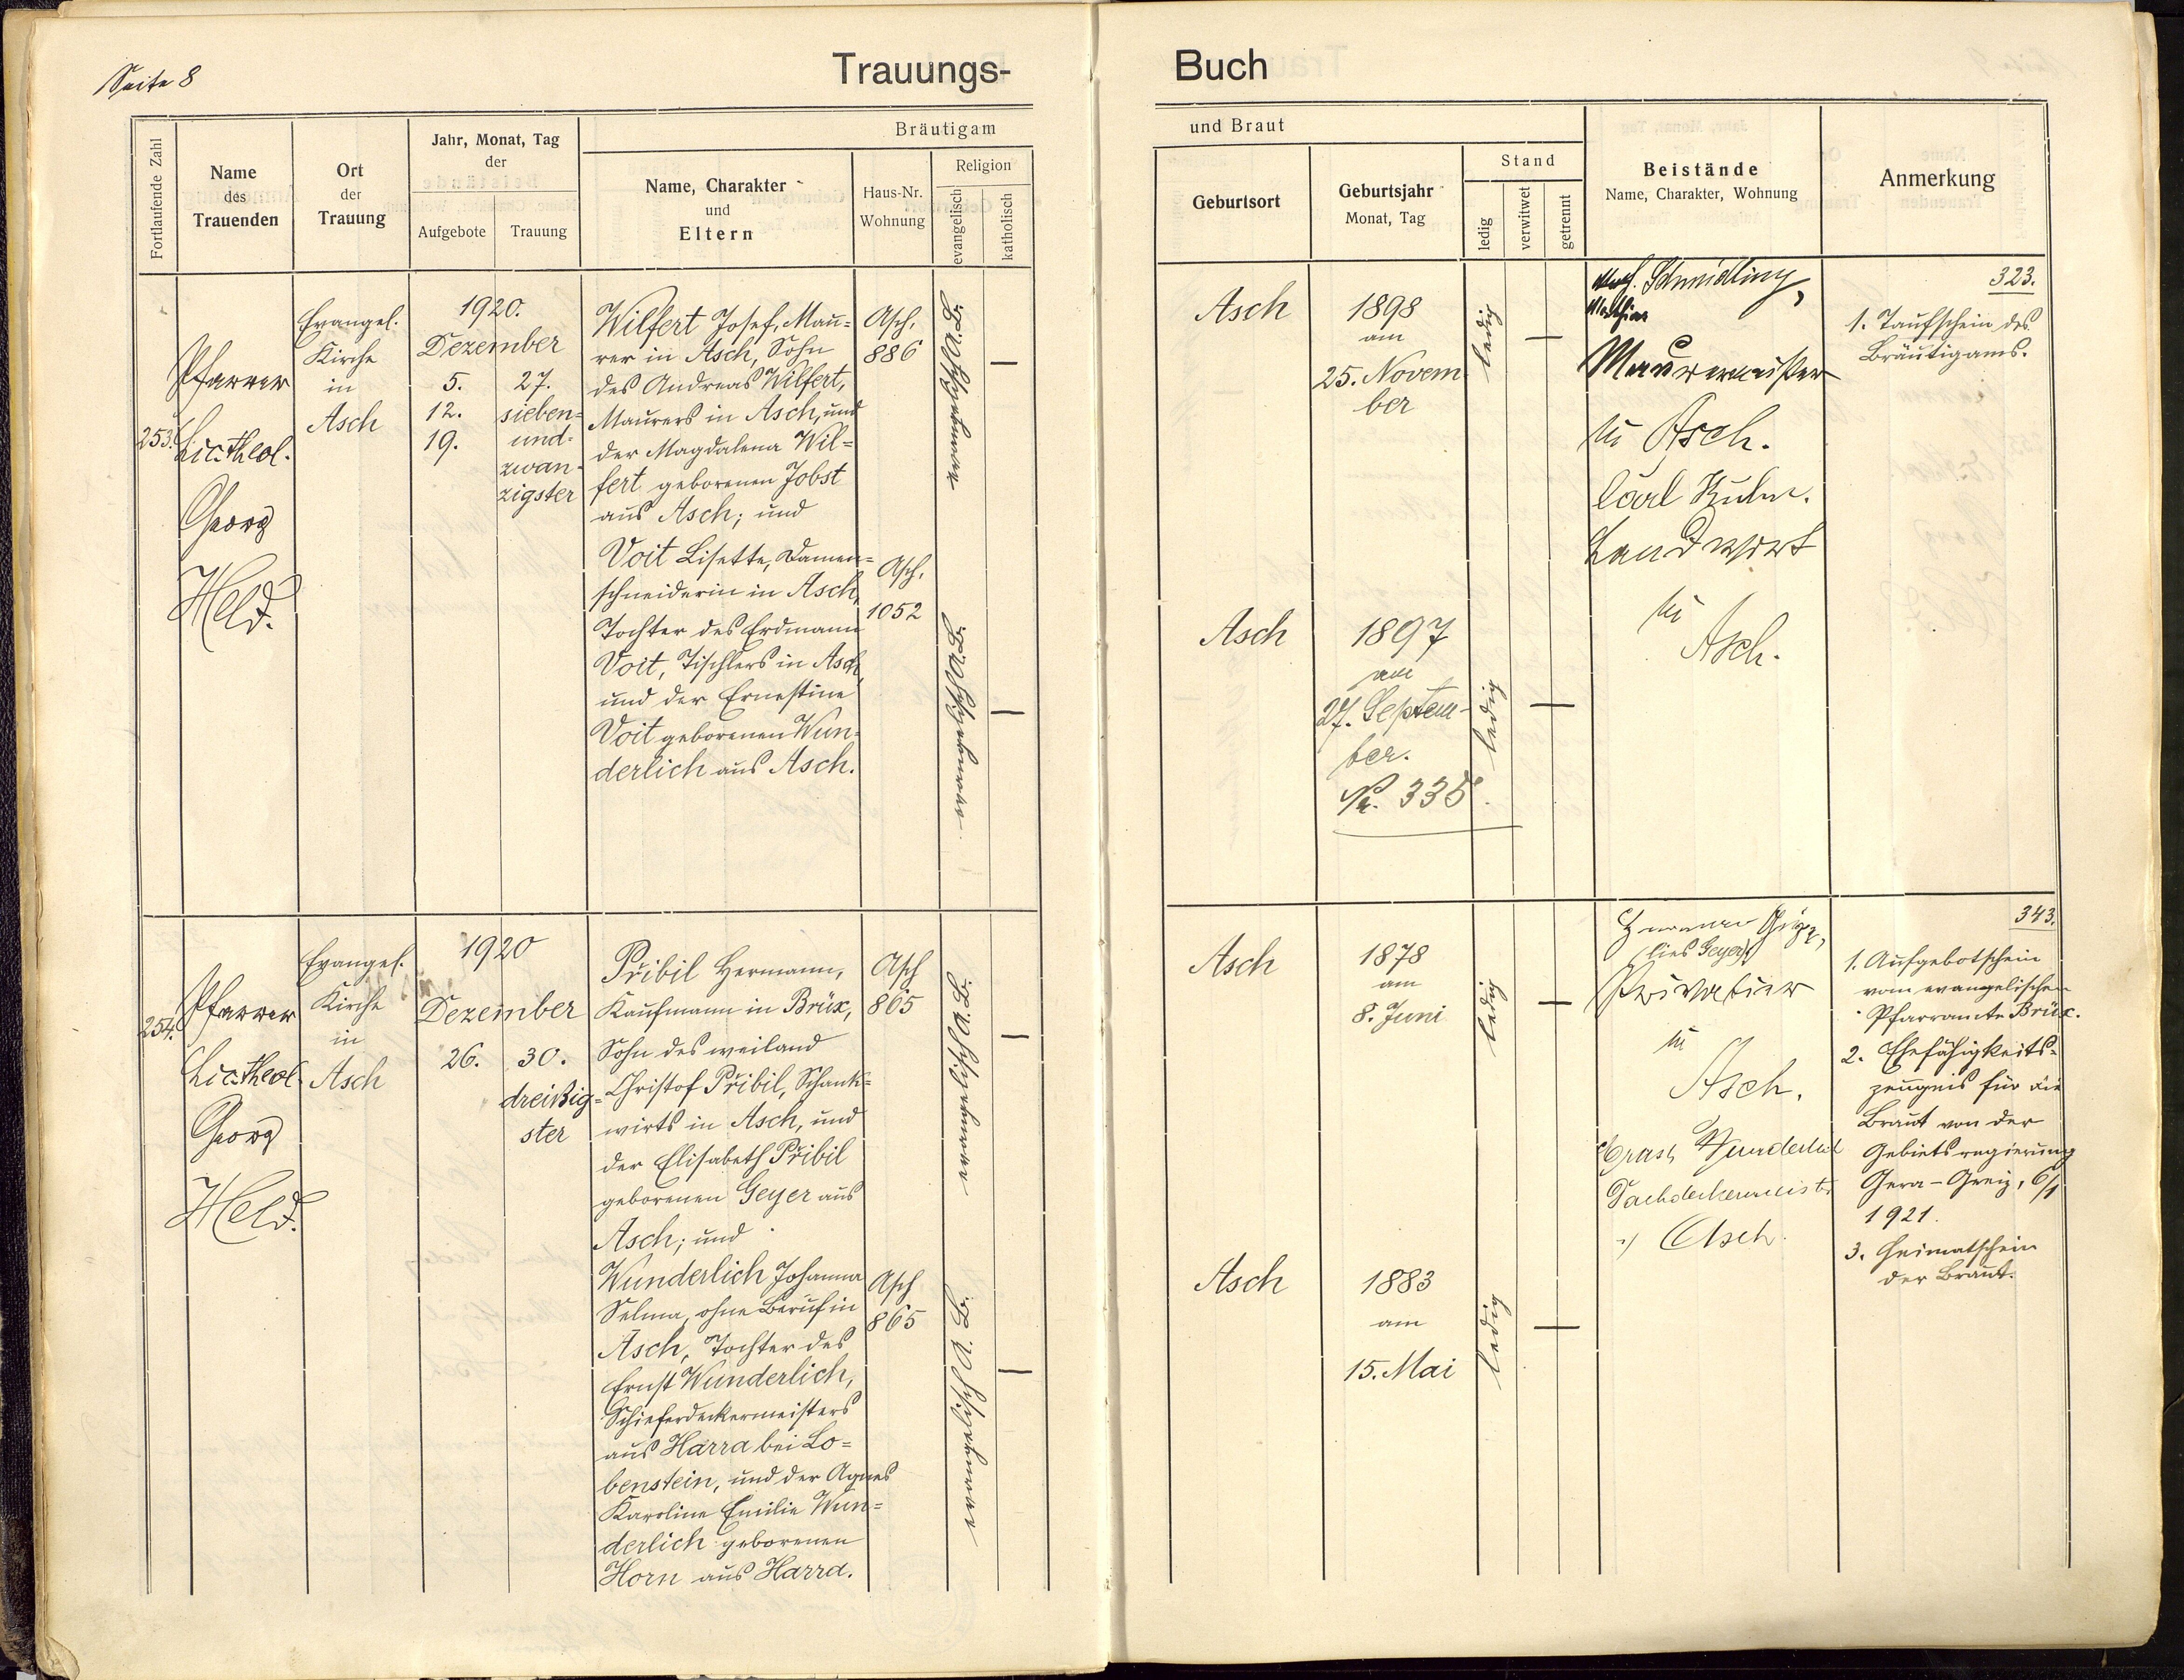 Seite 8
Trauungs-
Fortlaufende Zahl
Name
des
Trauenden
Ort
der
Trauung
Jahr, Monat, Tag
der
Aufgebote
Trauung
Bräutigam
Name, Charakter
und
Eltern
Haus-Nr.
Wohnung
Religion
evangelisch
katholisch
253.
Pfarrer
Lic. theol.
Georg
Held.
Evangel.
Kirche
in
Asch
1920.
Dezember
5.
12.
19.
27.
sieben-
und-
zwan-
zigster
Wilfert Josef, Mau-
rer in Asch, Sohn
des Andreas Wilfert,
Maurers in Asch, und
der Magdalena Wil-
fert geborenen Jobst
aus Asch; und
Voit Lisette, Damen-
schneiderin in Asch,
Tochter des Erdmann
Voit, Tischlers in Asch,
und der Ernestine
Voit geborenen Wun-
derlich aus Asch.
Asch,
886
Asch,
1052
evangelisch A. B.
—
evangelisch A. B.
—
254.
Pfarrer
Lic. theol.
Georg
Held.
Evangel.
Kirche
in
Asch
1920
Dezember
26.
30.
dreißig-
ster
Přibil Hermann,
Kaufmann in Brüx,
Sohn des weiland
Christof Přibil, Schank-
wirts in Asch, und
der Elisabeth Přibil
geborenen Geyer aus
Asch; und
Wunderlich Johanna
Selma, ohne Beruf in
Asch, Tochter des
Ernst Wunderlich,
Schieferdeckermeisters
aus Harra bei Lo-
benstein, und der Agnes
Karoline Emilie Wun-
derlich geborenen
Horn aus Harra.
Asch
865
Asch
865
evangelisch A. B.
—
evangelisch A. B.
—
Buch
und Braut
Geburtsort
Geburtsjahr
Monat, Tag
Stand
ledig
verwitwet
getrennt
Beistände
Name, Charakter, Wohnung
Anmerkung
Asch
1898
am
25. Novem
ber
ledig
—
Schmidling,
Mathias
Maurermeister
in Asch.
Carl Kuhn.
Landwirt
in
Asch.
323.
1. Taufschein des
Bräutigams.
Asch
1897
am
27. Septem-
ber.
Nr. 335.
ledig
—
Asch
1878
am
8. Juni
ledig
—
Hermann
(lies Geyer),
Privatier
in
Asch.
Ernst Wunderlich
Dachdeckermeister
Asch.
343.
1. Aufgebotschein
vom evangelischen
Pfarramte Brüx.
2. Ehefähigkeits-
zeugnis für die
Braut von der
Gebietsregierung
Gera-Greiz, 6/1
1921.
3. Heimatschein
der Braut.
Asch
1883
am
15. Mai
ledig
—